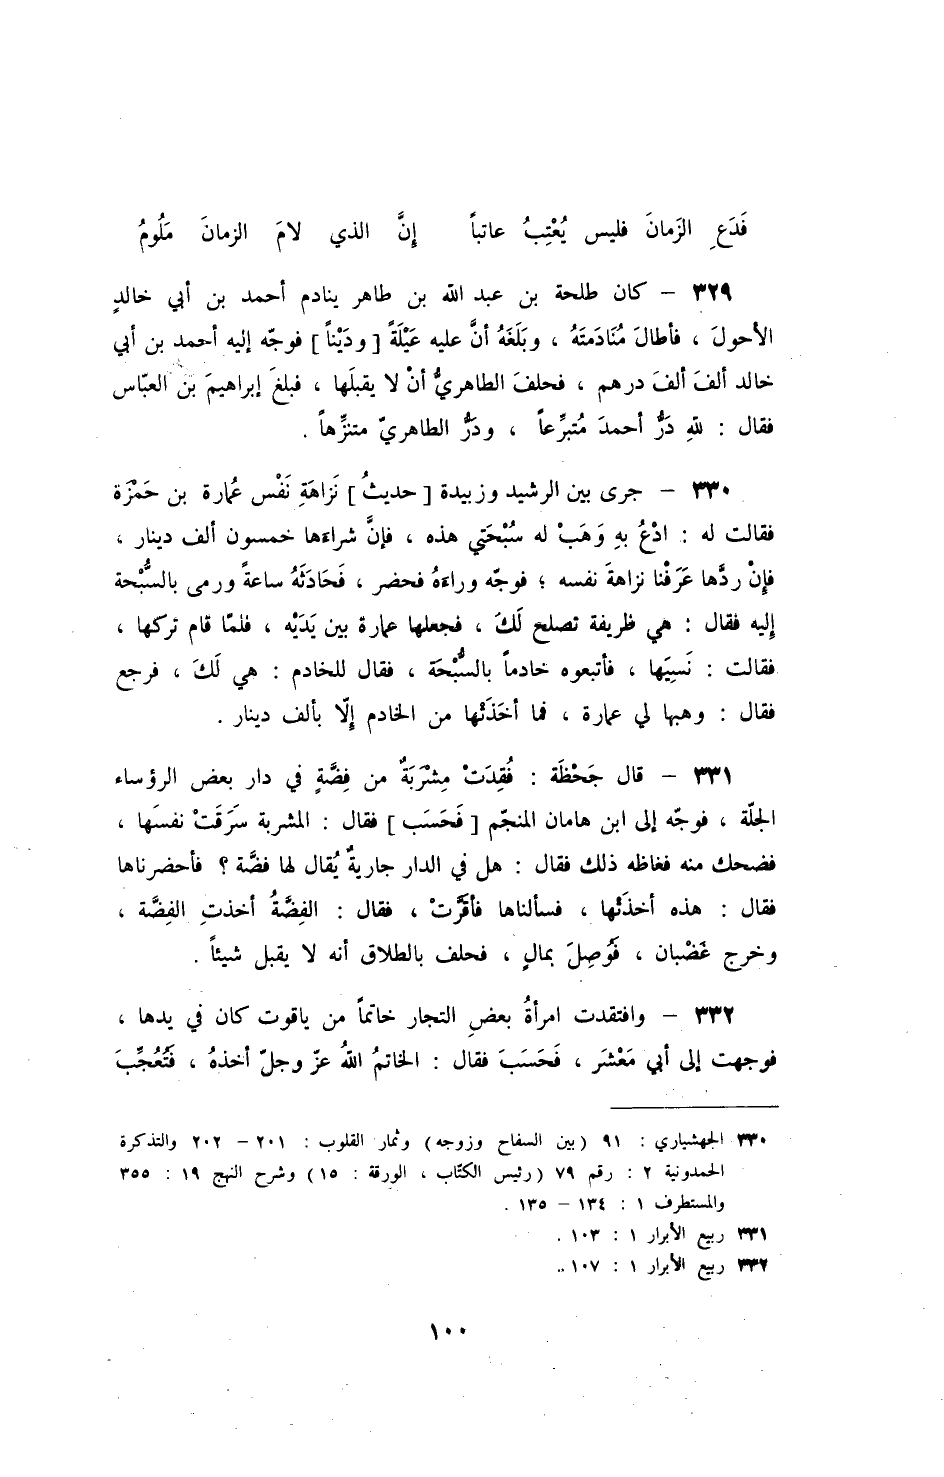 فَدَعِ الزَمانَ فليس يُعْتِبُ عاتباً إنَّ الذي لامَ الزمانَ مَلُومُ
٣٢٩ – كان طلحة بن عبد الله بن طاهر ينادم أحمد بن أبي خالدٍ
الأحولَ ، فأطالَ مُنَادَمتَهُ ، وبَلَغَهُ أنَّ عليه عَيْلَةً [ ودَيْناً ] فوجّه إليه أحمد بن أبي
خالد ألفَ ألفَ درهم ، فحلفَ الطاهريُّ أنْ لا يقبلَها ، فبلغَ إبراهيمَ بن العبّاس
فقال : للهِ دَرُّ أحمدَ مُتبرِّعاً ، ودَرُّ الطاهريّ متنزِّهاً .
٣٣٠ – جرى بين الرشيد وزبيدة [ حديثُ ] نَزاهَةِ نَفْس عُمارة بن حَمْزَة
فقالت له : ادْعُ بهِ وَهَبْ له سُبْحَتي هذه ، فإنَّ شراءها خمسون ألف دينار ،
فإنْ ردَّها عَرَفْنا نزاهةَ نفسه ؛ فوجّه وراءهُ فحضر ، فَحَادَثَهُ ساعةً ورمى بالسُّبْحة
إليه فقال : هي ظريفة تصلح لَكَ ، فجعلها عمارة بين يَدَيْه ، فلمّا قام تركها ،
فقالت : نَسِيَها ، فأتبعوه خادماً بالسُّبْحَة ، فقال للخادم : هي لَكَ ، فرجع
فقال : وهبها لي عمارة ، فما أخَذَتْها من الخادم إلّا بألف دينار .
٣٣١ – قال جَحْظَة : فُقِدَتْ مِشْرَبَةٌ من فِضَّةٍ في دار بعض الرؤساء
الجلّة ، فوجّه إلى ابن هامان المنجّم [ فَحَسَب ] فقال : المشربة سَرَقَتْ نفسَها ،
فضحك منه فغاظه ذلك فقال : هل في الدار جاريةٌ يُقال لها فضَّة ؟ فأحضرناها
فقال : هذه أخذَتْها ، فسألناها فأقرَّتْ ، فقال : الفِضَّةُ أخذتِ الفِضَّة ،
وخرج غَضْبان ، فَوُصِلَ بمالٍ ، فحلف بالطلاق أنه لا يقبل شيئاً .
٣٣٢ – وافتقدت امرأةُ بعضِ التجار خاتماً من ياقوت كان في يدها ،
فوجهت إلى أبي مَعْشَر ، فَحَسَبَ فقال : الخاتمُ اللهُ عزّ وجلّ أخذهُ ، فَتُعُجِّبَ
٣٣٠ الجهشياري : ٩١ (بين السفاح وزوجه) وثمار القلوب : ٢٠١ – ٢٠٢ والتذكرة
الحمدونية ٢ : رقم ٧٩ (رئيس الكتّاب ، الورقة : ١٥) وشرح النهج ١٩ : ٣٥٥
والمستطرف ١ : ١٣٤ – ١٣٥ .
٣٣١ ربيع الأبرار ١ : ١٠٣ .
٣٣٢ ربيع الأبرار ١ : ١٠٧ ..
١٠٠